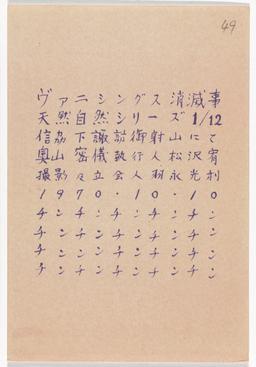 49
ヴァニシングス消滅事
天然自然シリーズ1/12
信州下諏訪御射山にて
奥山密儀敢行人松沢宥
撮影々立会人羽永光利
1970・10・10
チンチンチンチンチン
チンチンチンチンチン
チンチンチンチンチン
チンチンチンチンチン